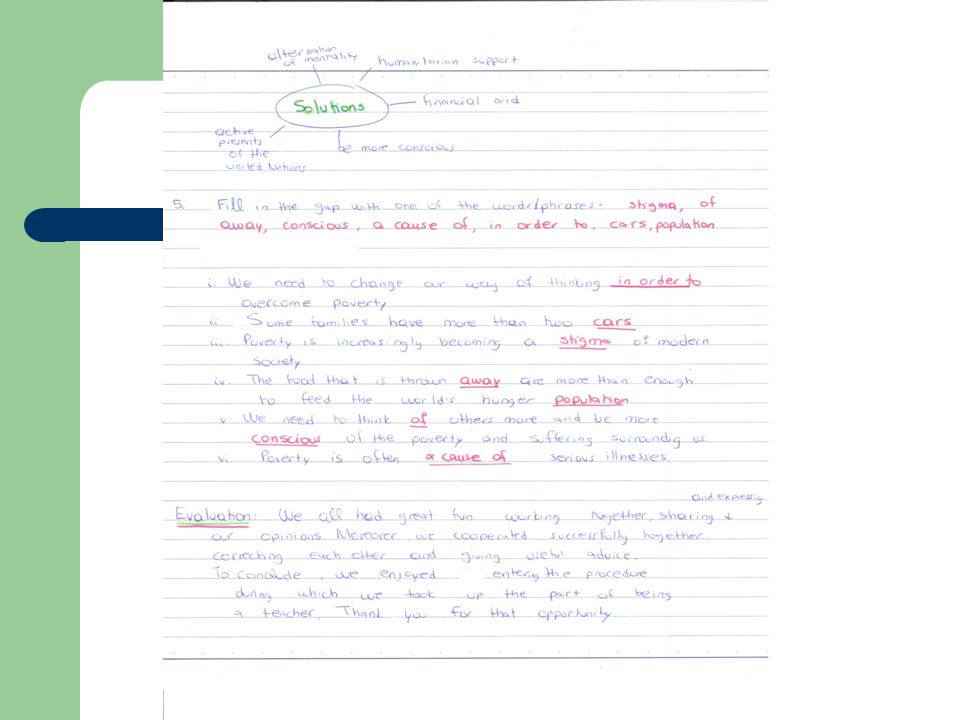 alternation
of mentality
humanitarian support
Solutions
financial aid
active
presents
of the
united Nations
be more conscious
5. Fill in the gap with one of the words/phrases. stigma, of
away, conscious, a cause of, in order to, cars, population
i. We need to change our way of thinking in order to
overcome poverty
ii Some families have more than two cars
iii. Poverty is increasingly becoming a stigma of modern
society
iv. The food that is thrown away are more than enough
to feed the world's hunger population
v We need to think of others more and be more
conscious of the poverty and suffering surrounding us
vi. Poverty is often a cause of serious illnesses.
and expressing
Evaluation: We all had great fun working together, sharing
our opinions. Moreover, we cooperated successfully together,
correcting each other and giving useful advice.
To conclude, we enjoyed entering the procedure
during which we took up the part of being
a teacher. Thank you for that opportunity.